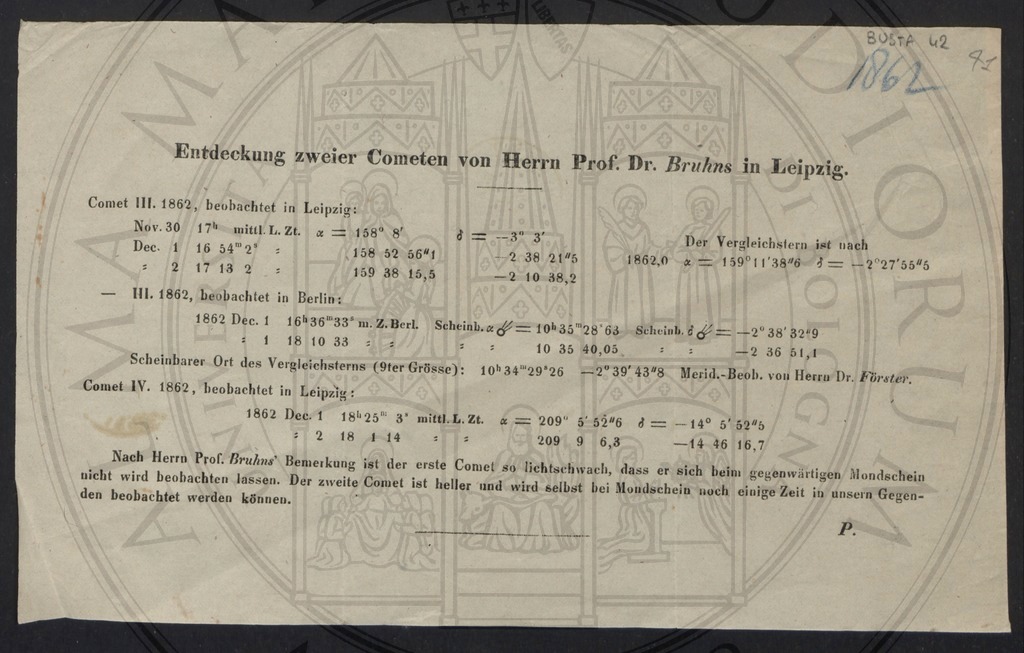 BUSTA 42
41
1862
Entdeckung zweier Cometen von Herrn Prof. Dr. Bruhns in Leipzig.
Comet III. 1862, beobachtet in Leipzig:
Nov. 30 17ʰ mittl. L. Zt. α = 158° 8′ δ = —3° 3′
Dec. 1 16 54ᵐ 2ˢ : 158 52 56″1 —2 38 21″5
: 2 17 13 2 : 159 38 15,5 —2 10 38,2
Der Vergleichstern ist nach
1862,0 α = 159° 11′ 38″6 δ = —2° 27′ 55″5
— III. 1862, beobachtet in Berlin:
1862 Dec. 1 16ʰ 36ᵐ 33ˢ m. Z. Berl. Scheinb. α ☄ = 10ʰ 35ᵐ 28ˢ 63 Scheinb. δ ☄ = —2° 38′ 32″9
: 1 18 10 33 : : : : 10 35 40,05 : : —2 36 51,1
Scheinbarer Ort des Vergleichsterns (9ter Grösse): 10ʰ 34ᵐ 29ˢ 26 —2° 39′ 43″8 Merid.-Beob. von Herrn Dr. Förster.
Comet IV. 1862, beobachtet in Leipzig:
1862 Dec. 1 18ʰ 25ᵐ 3ˢ mittl. L. Zt. α = 209° 5′ 52″6 δ = —14° 5′ 52″5
: 2 18 1 14 : : 209 9 6,3 —14 46 16,7
Nach Herrn Prof. Bruhns' Bemerkung ist der erste Comet so lichtschwach, dass er sich beim gegenwärtigen Mondschein
nicht wird beobachten lassen. Der zweite Comet ist heller und wird selbst bei Mondschein noch einige Zeit in unsern Gegen-
den beobachtet werden können.
P.
ALMA MATER STUDIORUM
LIBERTAS